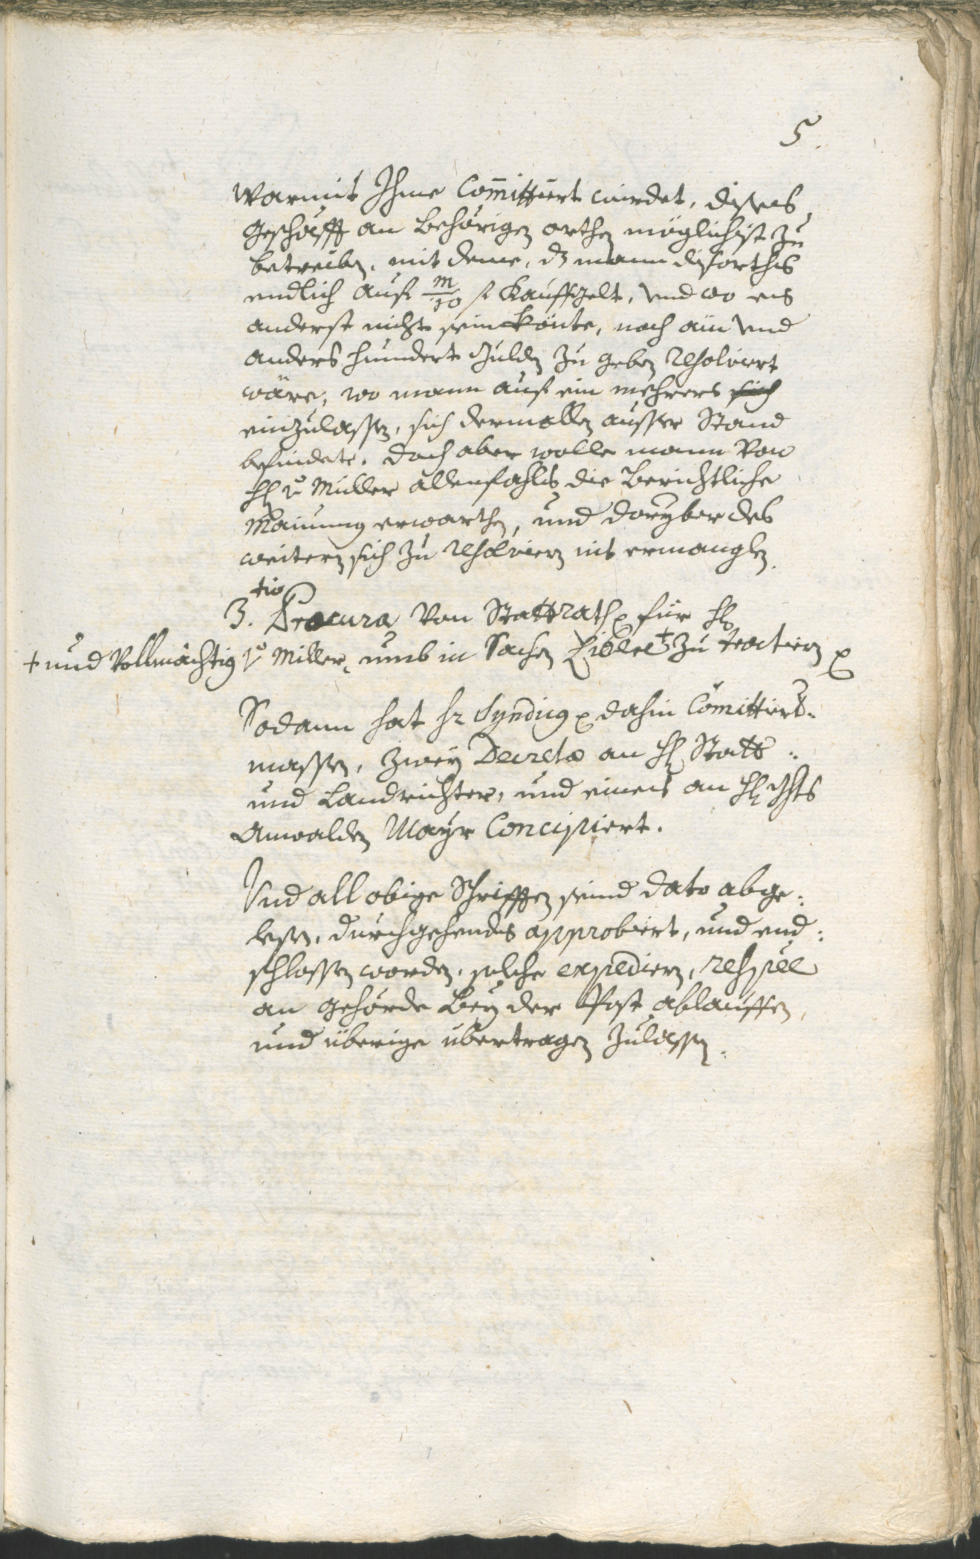 5.
Warmit Ihme Com̄ittiert wirdet, dises
Geschäfft an behörigen orthen möglichist zu
betreiben, mit deme, dz mann diserthls
endlich auf m/10 f Kauffgelt, und wo es
anderst nicht sein könte, noch ain und
anders hundert Gulden zu geben resolviert
wäre, wo mann auf ein mehrers sich
einzulassen, sich dermallen ausser Stand
befindete. doch aber wolle mann von
H: v: Miller allenfahls die berichtliche
Mainung erwarthen, und darÿber des
weitern sich zu resolvieren nit ermanglen.
3.tio Procura von Stattrath für H:
+ und Vollmächtig v: Miller, umb in Sachen + zu tractieren
Sodann hat hr Syndicg dahin Com̄ittiert-
massen, zweÿ Decreta an H: Statt-:
und Landrichter, und eines an H:
Anwalden Maÿr Concipiert.
Und all obige Schrifften seind dato abge-:
lesen, durchgehendts approbiert, und end-:
schlossen worden, solche expedieren, respće
an gehörde beÿ der Post ablauffen,
und überige übertragen zulassen.